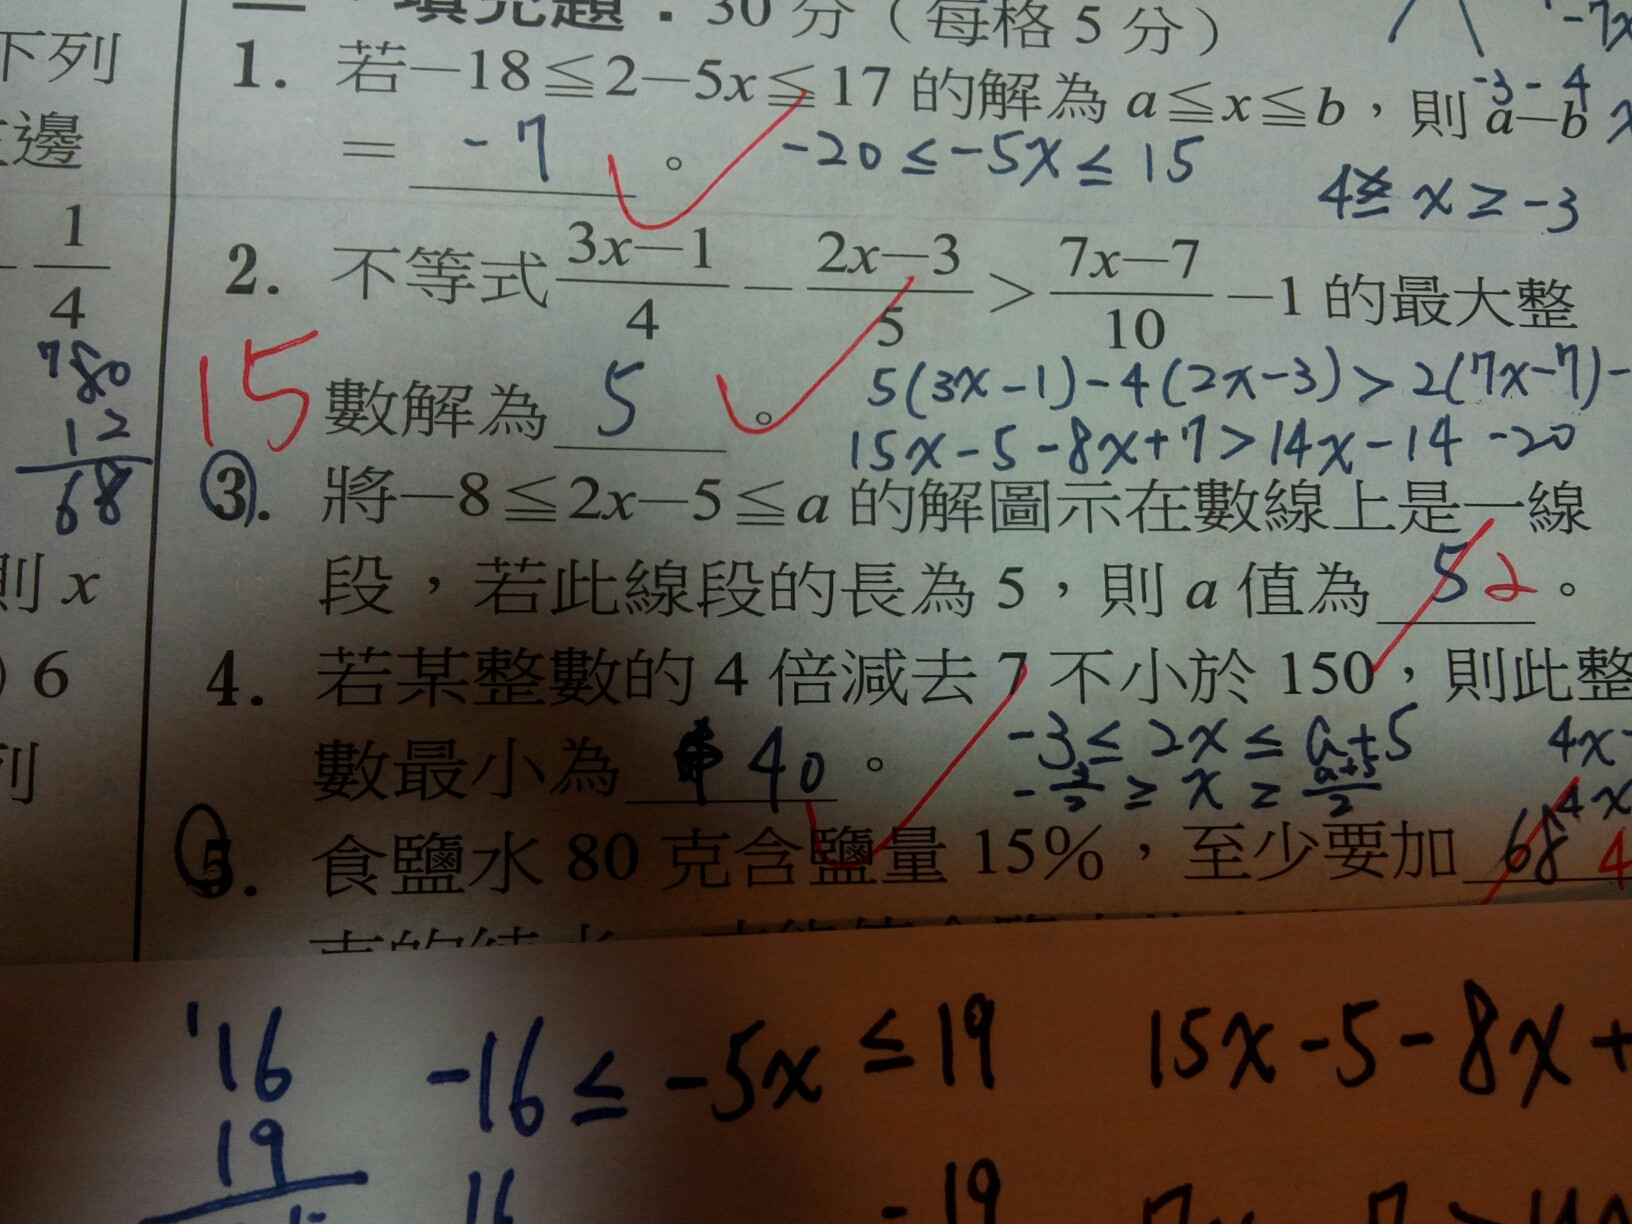 二、填充題：30 分（每格 5 分）
1. 若−18≦2−5x≦17 的解為 a≦x≦b，則 a−b
-3 - 4
= -7 。
-20 ≤ -5x ≤ 15
x ≥ -3
2. 不等式 (3x−1)/4 − (2x−3)/5 > (7x−7)/10 −1 的最大整
數解為 5 。
15
5(3x-1)-4(2x-3)>2(7x-7)-
15x-5-8x+7>14x-14 -20
3. 將−8≦2x−5≦a 的解圖示在數線上是一線
段，若此線段的長為 5，則 a 值為 5 2 。
4. 若某整數的 4 倍減去 7 不小於 150，則此整
數最小為 40 。
-3 ≤ 2x ≤ a+5
-3/2 ≥ x ≥ (a+5)/2
4x-
5. 食鹽水 80 克含鹽量 15%，至少要加 68 4
下列
邊
1/4
780
12
68
則 x
) 6
列
-7x
16
19
-16 ≤ -5x ≤ 19
16
-19
15x-5-8x+